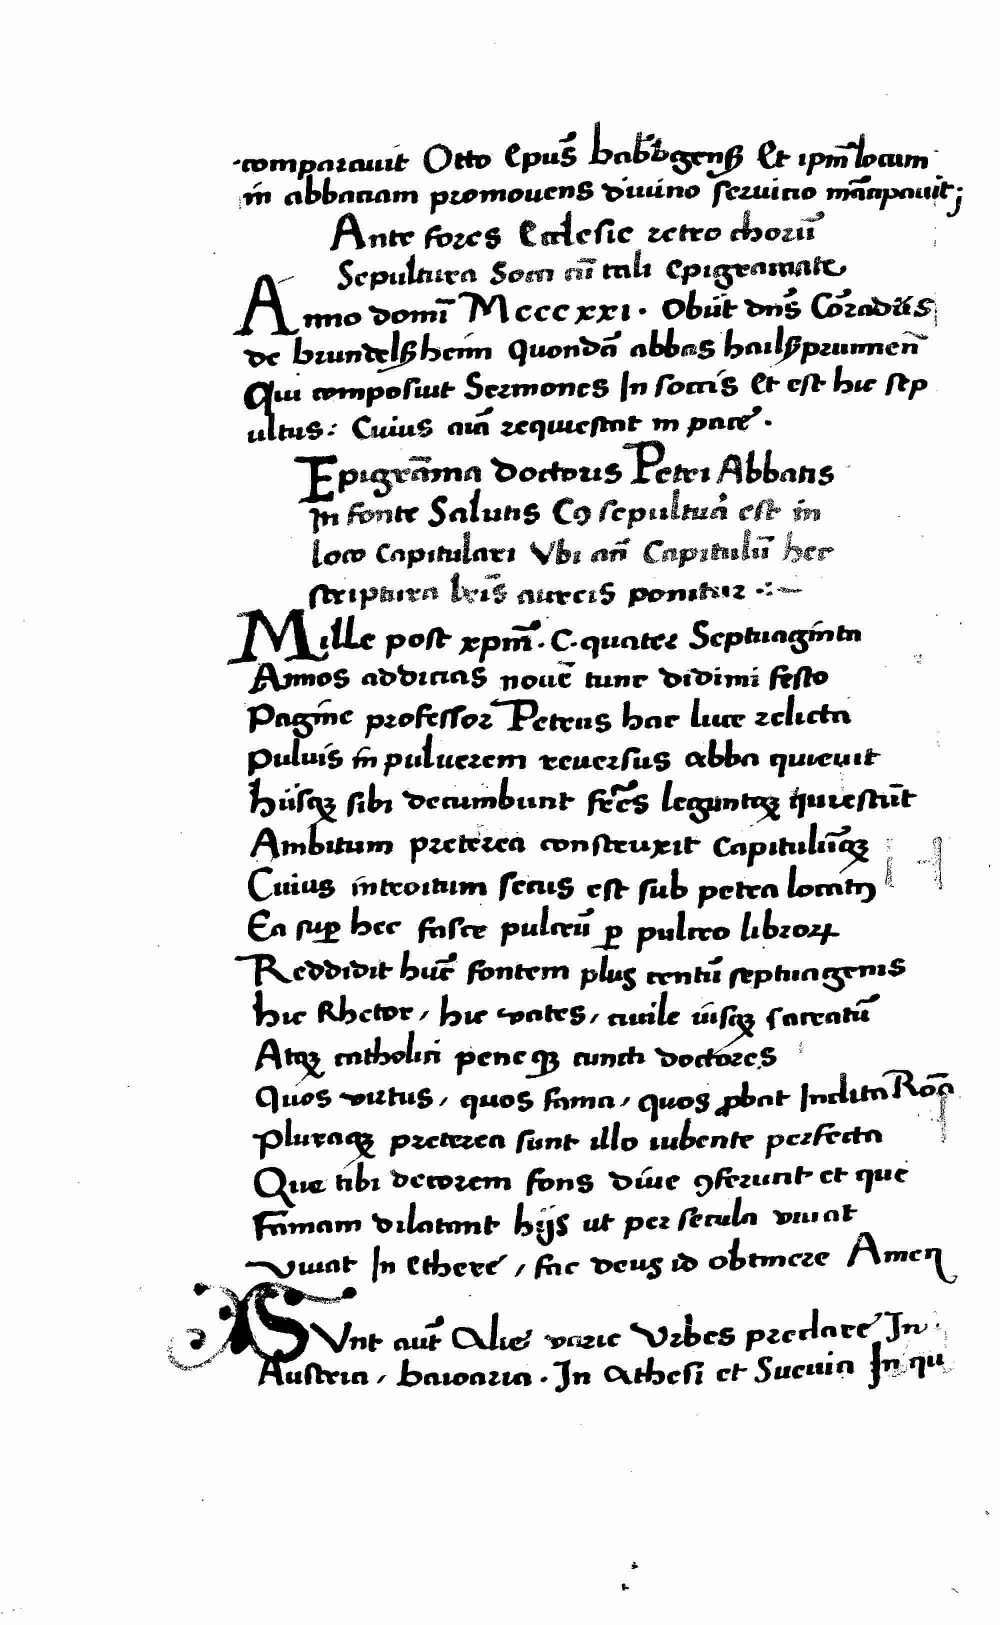 comparauit Otto Epūs babūbgenß Et ipm̄ locum
in abbaciam promouens diuino seruicio mācipauit;
Ante fores Ecclesie retro chorū
Sepultura Soccii cū tali Epigramate
Anno domī Mcccxxi. Obijt dns̄ Cōradus
de brundelßheim Quondā abbas hailßprunnen̄
Qui composiuit Sermones In soccis Et est hic sep
ultus: Cuius aīa requiescat in pace.
Epigrāma doctoris Petri Abbatis
In fonte Salutis Cꝰ sepultura est in
loco Capitulari Vbi an̄ Capitulū hec
scriptura lrīs aureis ponitur
Mille post xpm̄. C. quater Septuaginta
Annos addicias nouē tunc didimi festo
Pagine professor Petrus hac luce relicta
Puluis in puluerem reuersus abba quieuit
Hijsqꝫ sibi decumbunt frēs leguntqꝫ quiescūt
Ambitum preterea construxit Capitulūqꝫ
Cuius introitum secus est sub petra locatꝰ
Ea suꝑ hec fasce pulcrū ꝑ pulcro libroꝝ
Reddidit hūc fontem plus centū septuagenis
hic Rhetor, hic vates, ciuile iusqꝫ sacratū
Atqꝫ catholici peneqꝫ cuncti doctores
Quos virtus, quos fama, quos ꝓbat Inclita Roā
Pluraqꝫ preterea sunt illo iubente perfecta
Que tibi decorem fons diue ꝯferunt et que
Famam dilatant hijs ut per secula viuat
Viuat In Ethere, fac deus id obtinere Amen
SVnt aūt Alie varie Vrbes preclare In
Austria, baioaria. In Athesi et Sueuia In qu